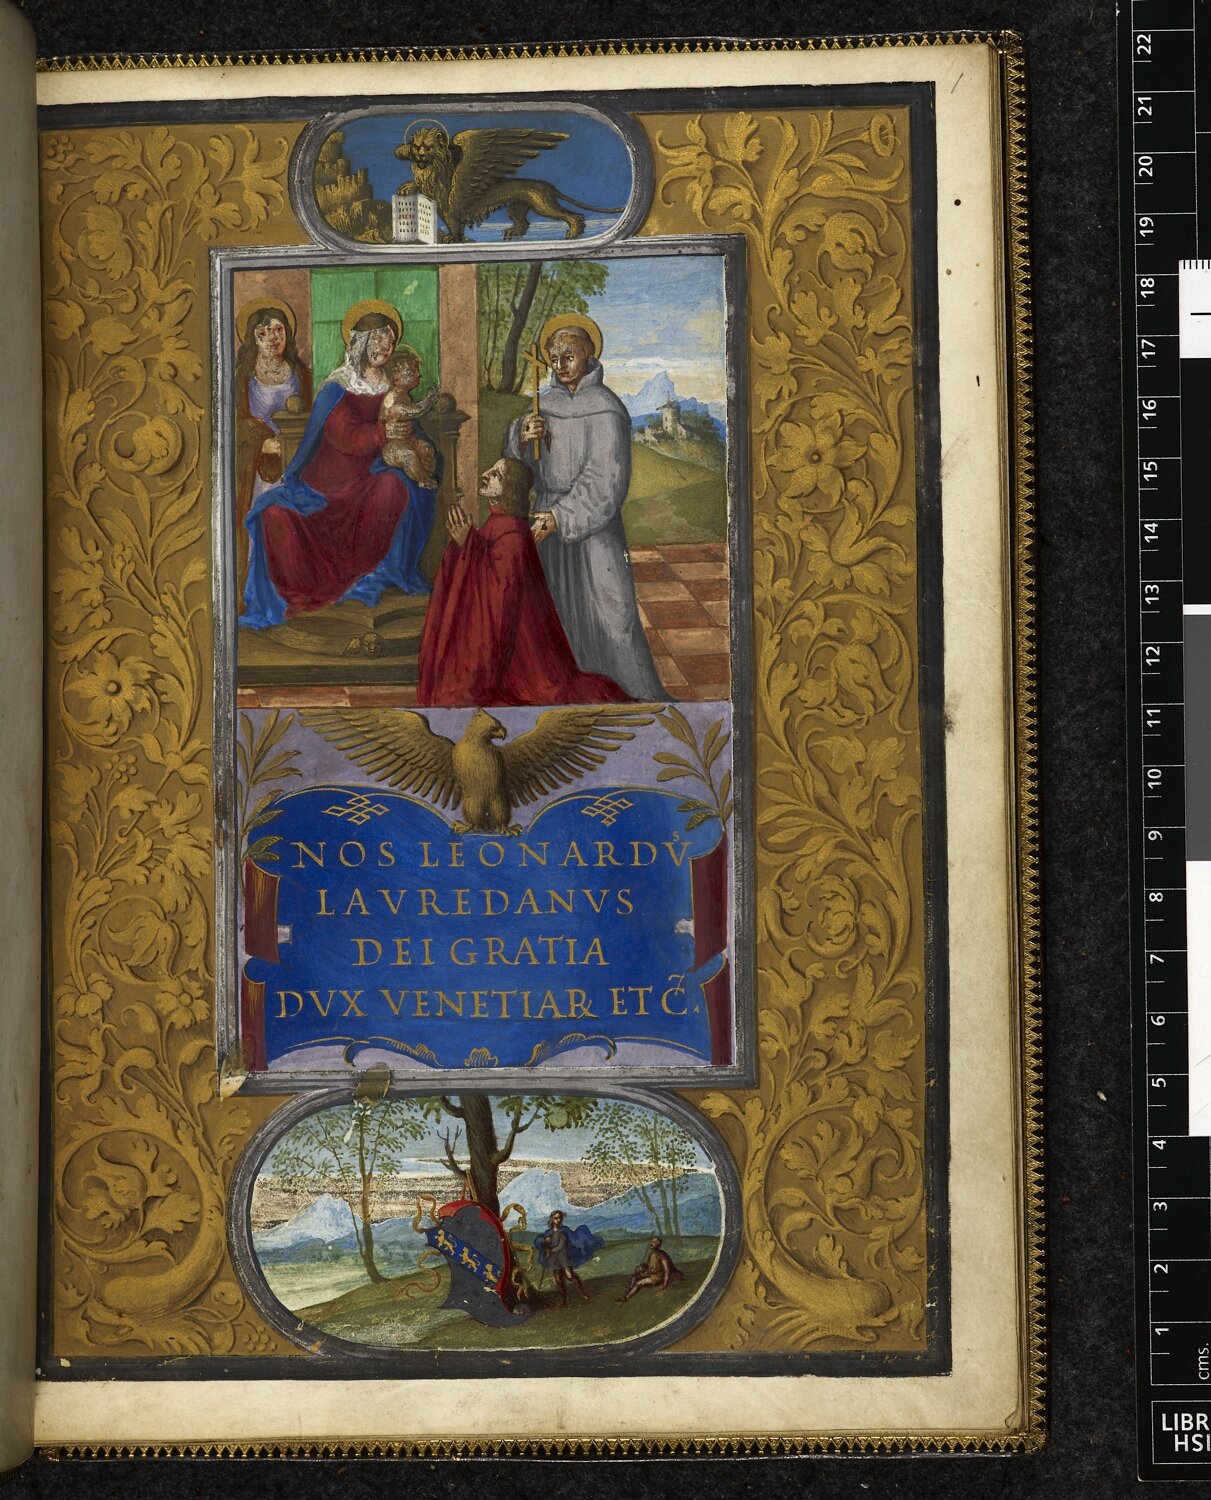 NOS LEONARDVS
LAVREDANVS
DEI GRATIA
DVX VENETIAR ET C.
1
22
21
20
19
18
17
16
15
14
13
12
11
10
9
8
7
6
5
4
3
2
1
cms.
LIBR
HSI